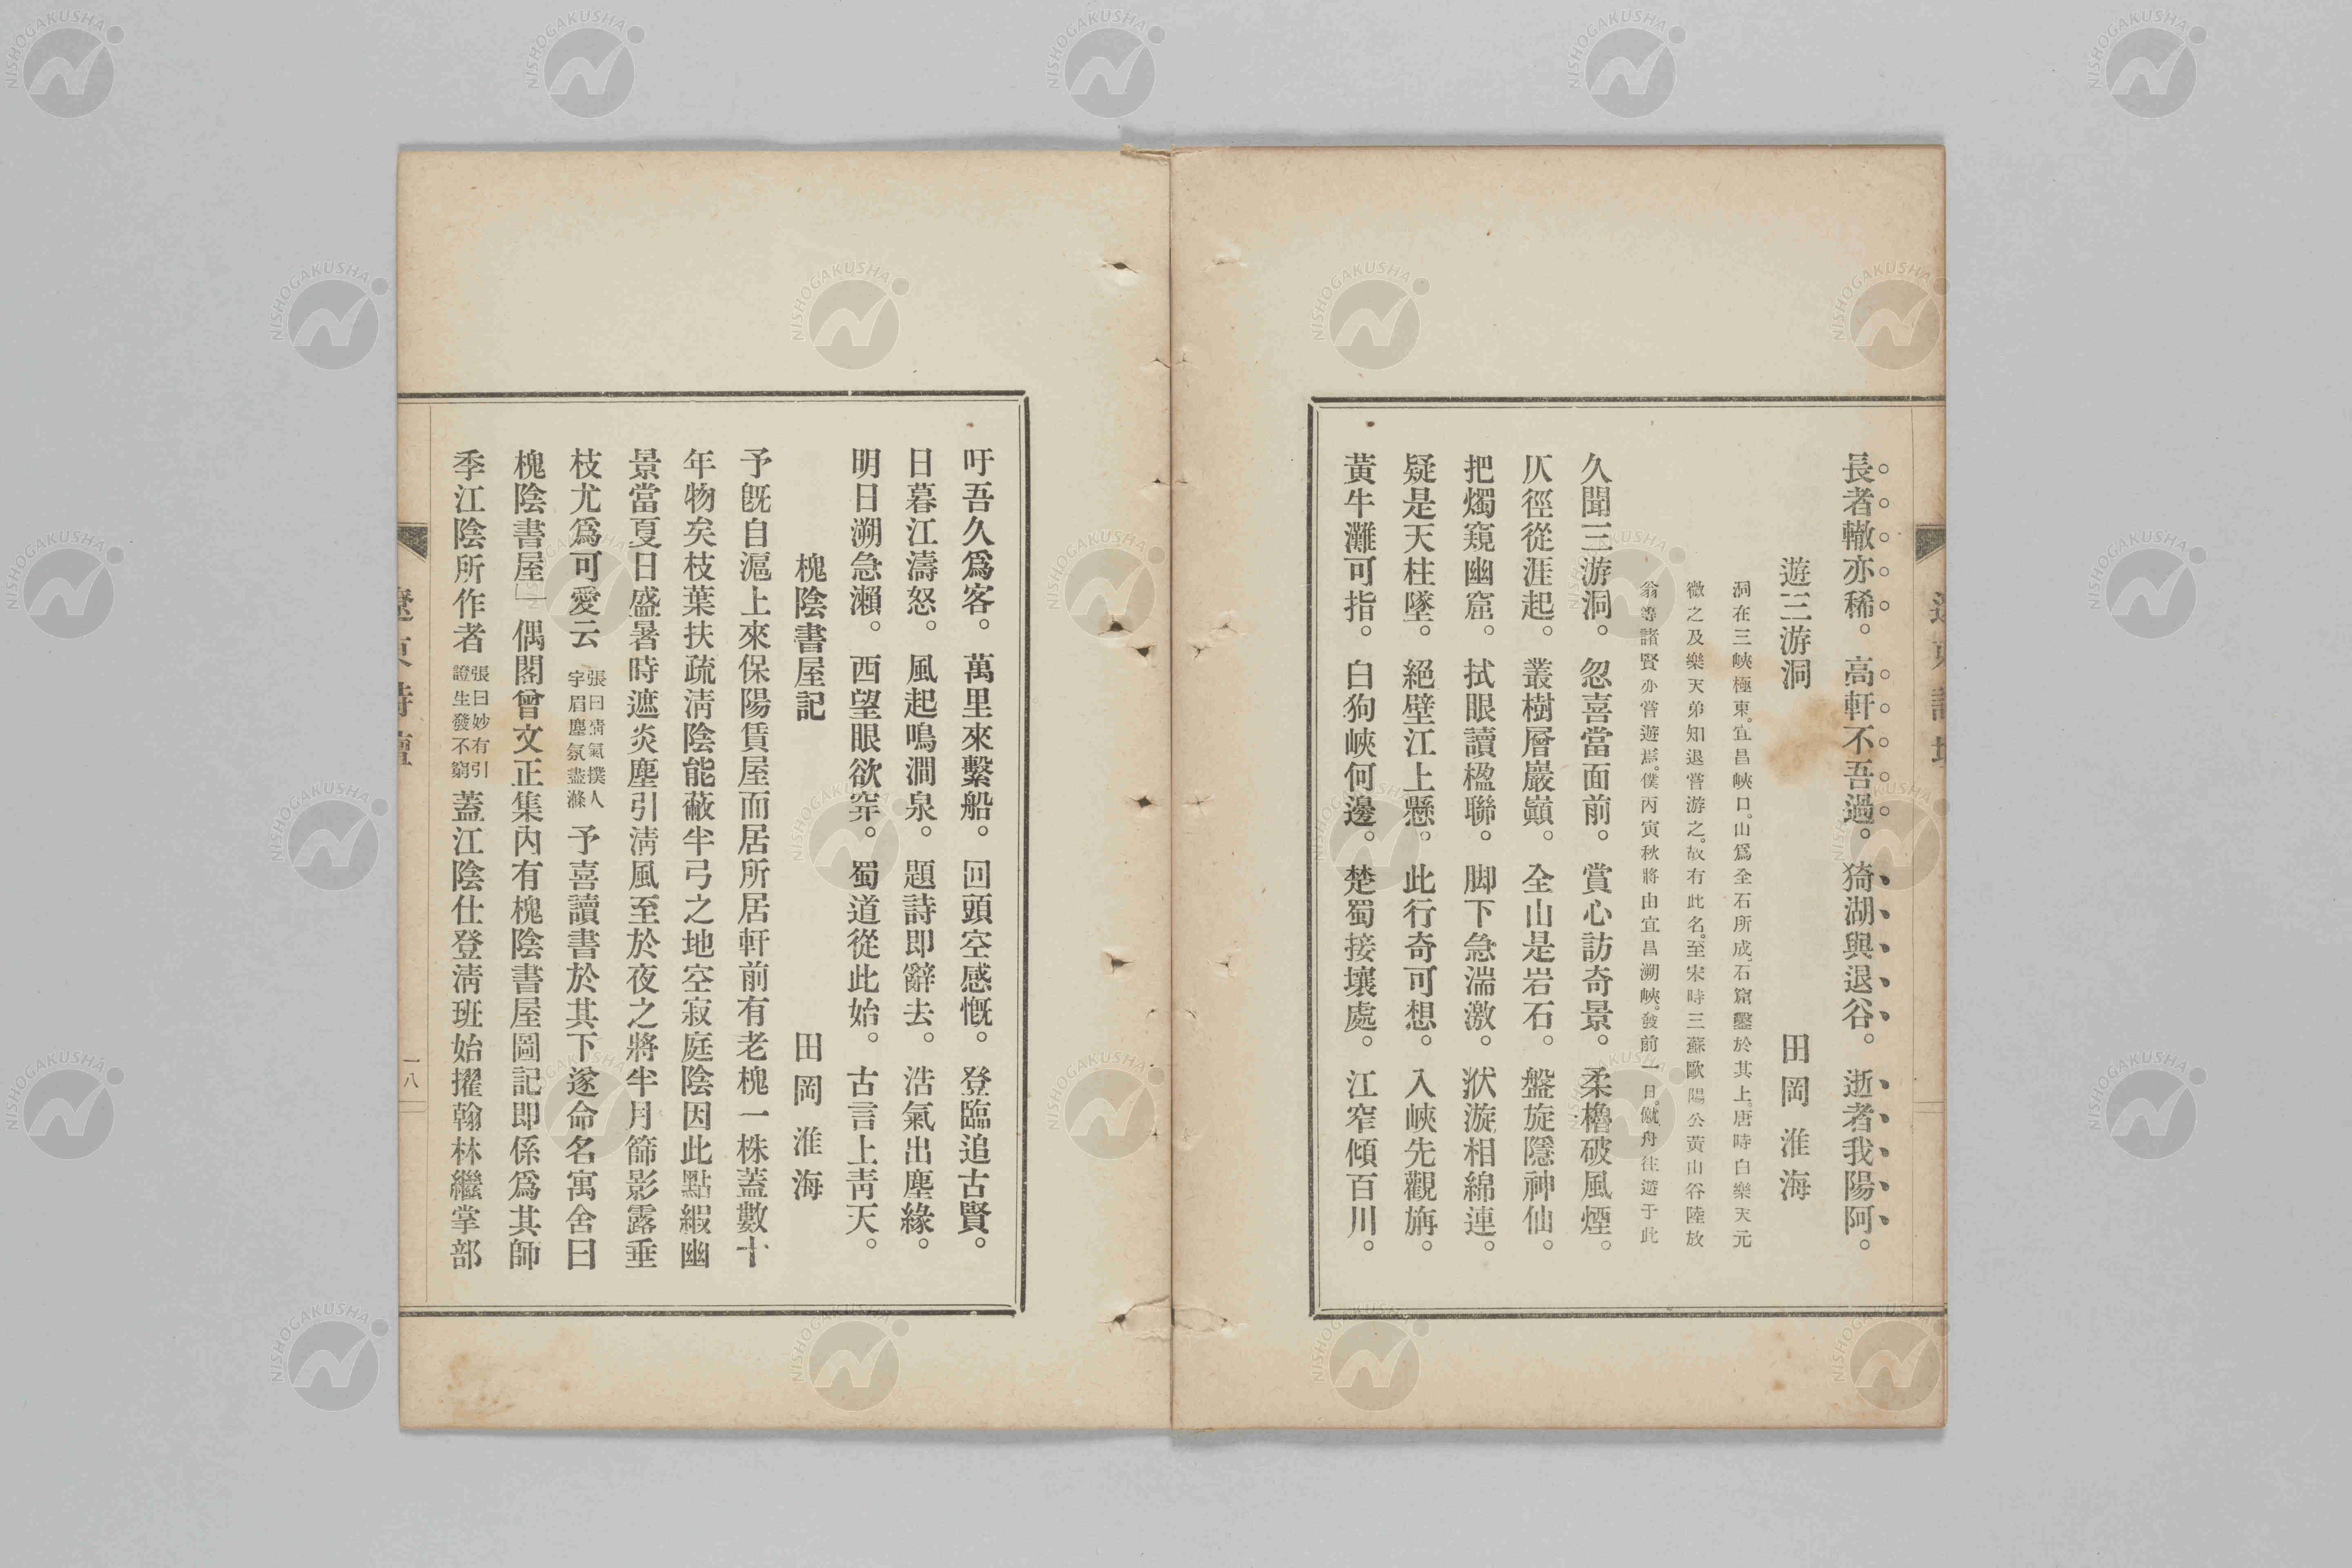 長者轍亦稀。高軒不吾過。猗湖與退谷。逝者我陽阿。
遊三游洞　田岡淮海
洞在三峽極東。宜昌峽口。山爲全石所成。石窟鑿於其上。唐時白樂天元
微之及樂天弟知退嘗游之。故有此名。至宋時三蘇歐陽公黃山谷陸放
翁等諸賢亦嘗遊焉。僕丙寅秋將由宜昌溯峽。發前一日。僦舟往遊于此
久聞三游洞。忽喜當面前。賞心訪奇景。柔櫓破風煙。
仄徑從涯起。叢樹層巖巓。全山是岩石。盤旋隱神仙。
把燭窺幽窟。拭眼讀楹聯。脚下急湍激。洑漩相綿連。
疑是天柱墜。絕壁江上懸。此行奇可想。入峽先觀旃。
黃牛灘可指。白狗峽何邊。楚蜀接壤處。江窄傾百川。
吁吾久爲客。萬里來繫船。回頭空感慨。登臨追古賢。
日暮江濤怒。風起鳴澗泉。題詩即辭去。浩氣出塵緣。
明日溯急瀨。西望眼欲穿。蜀道從此始。古言上靑天。
槐陰書屋記　田岡淮海
予旣自滬上來保陽賃屋而居所居軒前有老槐一株蓋數十
年物矣枝葉扶疏淸陰能蔽半弓之地空寂庭陰因此點緞幽
景當夏日盛暑時遮炎塵引淸風至於夜之將半月篩影露垂
枝尤爲可愛云張曰淸氣撲人宇眉塵氛盡滌予喜讀書於其下遂命名寓舍曰
槐陰書屋」偶閣曾文正集內有槐陰書屋圖記即係爲其師
季江陰所作者張曰妙有引證生發不窮蓋江陰仕登淸班始擢翰林繼掌部
遼東詩壇
一八